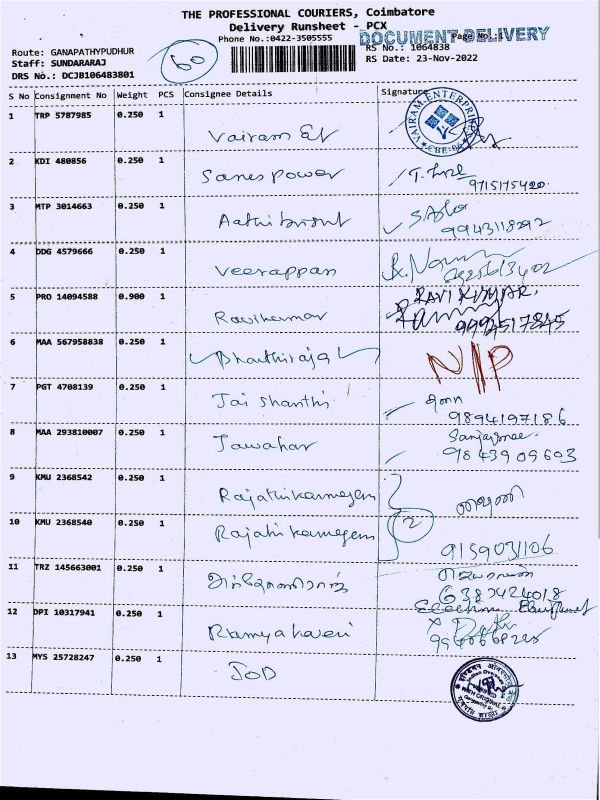 THE PROFESSIONAL COURIERS, Coimbatore
Delivery Runsheet - PCX
Phone No.:0422-3505555
DOCUMENT DELIVERY
Page No.:
Route: GANAPATHYPUDHUR
Staff: SUNDARARAJ
DRS No.: DCJB106483801
60
RS No.: 1064838
RS Date: 23-Nov-2022
S No Consignment No Weight PCS Consignee Details Signature
1 TRP 5787985 0.250 1 Vairam Et
VAIRAM ENTERPRISES
2 KDI 480856 0.250 1 Sanes power
9715175420
3 MTP 3014663 0.250 1
9943118292
4 DDG 4579666 0.250 1 Veerappan
5 PRO 14094588 0.900 1 Ravikumar
RAVI KUMAR.
6 MAA 567958838 0.250 1 Bharthiraja
N/P
7 PGT 4708139 0.250 1 Jai Shanthi
9894197186
8 MAA 293810007 0.250 1 Jawahar
9843909603
9 KMU 2368542 0.250 1 Rajathikannegen
10 KMU 2368540 0.250 1 Rajathikannegen
2
9159031106
11 TRZ 145663001 0.250 1
6382424018
12 DPI 10317941 0.250 1 Ramya
13 MYS 25728247 0.250 1 JOD